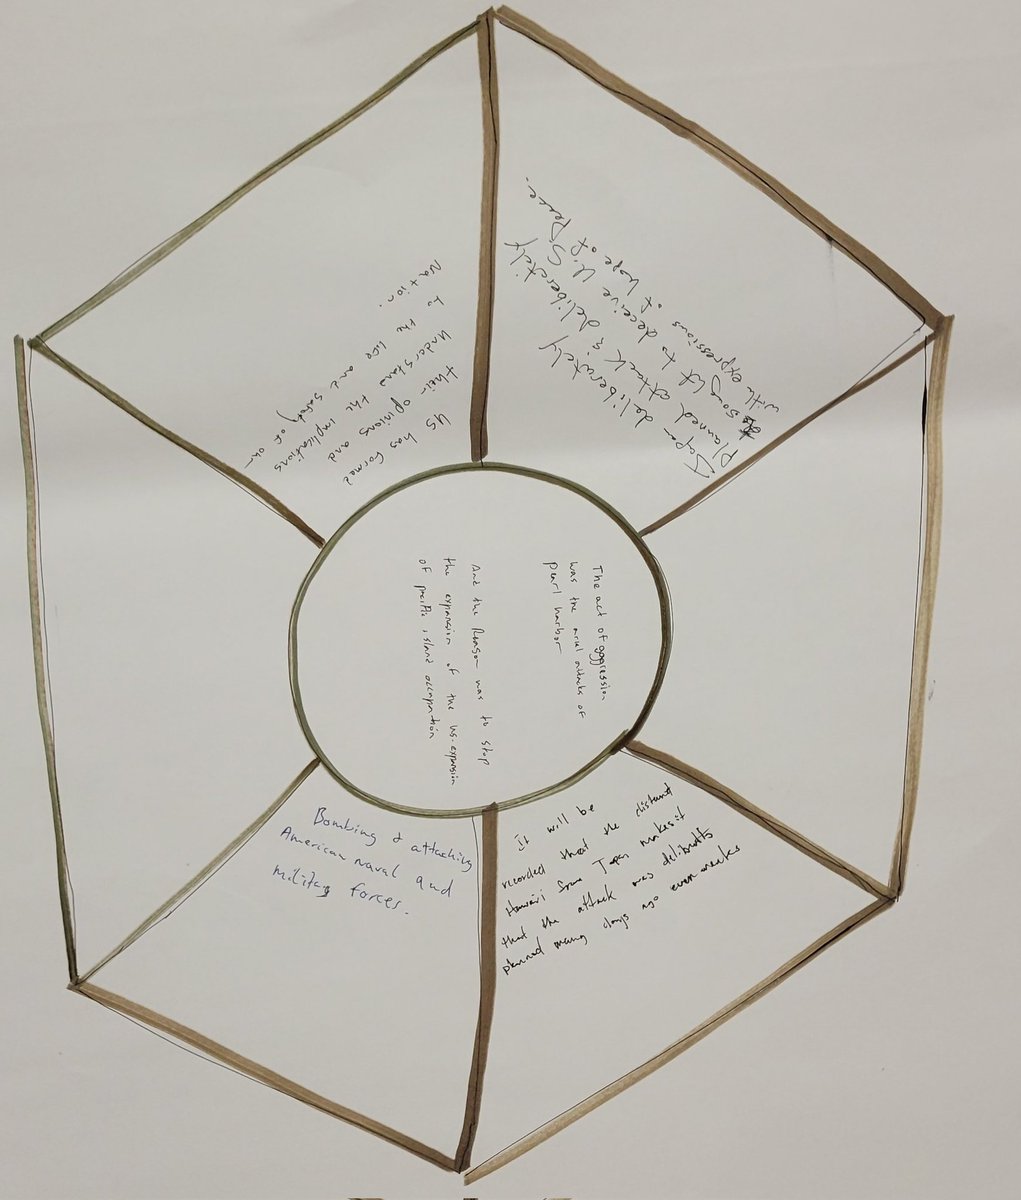 Japan deliberately
planned attack & deliberately
sought to deceive U.S
with expressions of hope of Peace.
US has formed
their opinions and
Understand the implications
to the life and safety of our
Nation.
The act of aggression
was the arial attacks of
pearl harbor
And the Reason was to stop
the expansion of the US. expansion
of pacific island occupation
Bombing & attacking
American naval and
military forces.
It will be
recorded that the distant
Hawaii from Japan makes it
that the attack was
planned many days ago even weaks